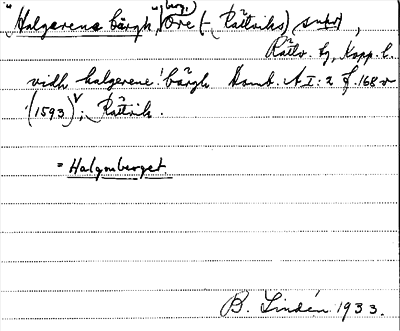 "Halgerens bärgh" (berg) Ore (- Rättviks) sn(ar),
Rättv. tg, Kopp. l.
vidh halgerene! bärgh Domb. A I: 2 f 168 v
(1593) ; Rättvik.
= Halgonberget
B. Lindén 1933.